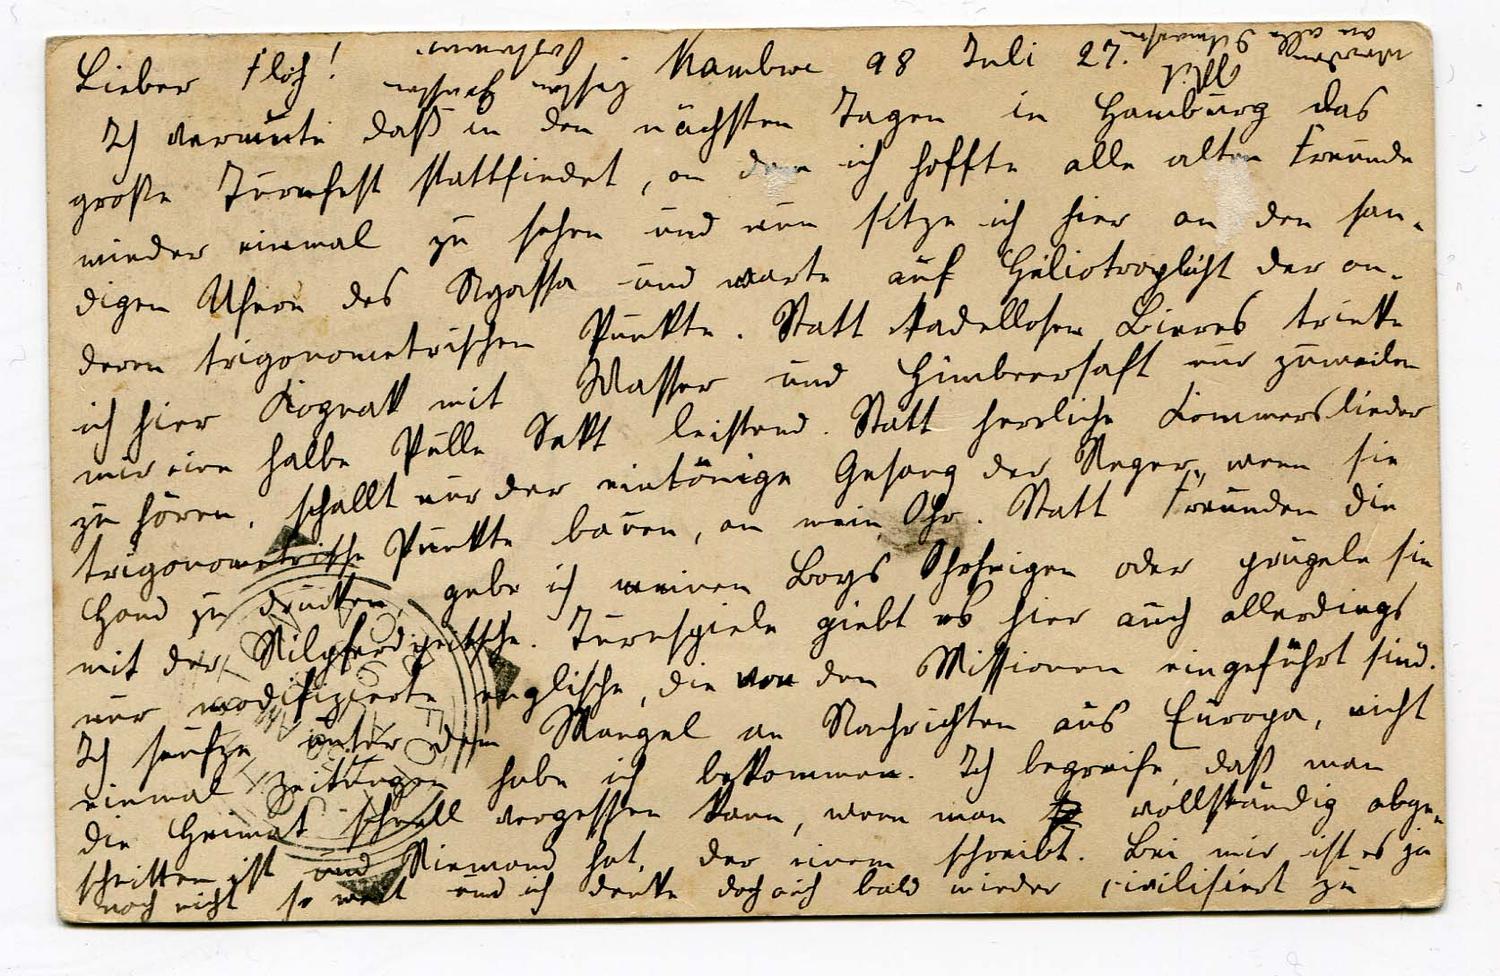 Lieber Floh! Mambwe 98 Juli 27.
Ich vermute daß in den nächsten Tagen in Hamburg das
große Turnfest stattfindet, an dem ich hoffte alle alten Freunde
wieder einmal zu sehen und nun sitze ich hier an den san-
digen Ufern des Nyassa und warte auf Heliotroplicht der an-
deren trigonometrischen Punkte. Statt tadellosen Bieres trinke
ich hier Kognak mit Wasser und Himbeersaft nur zuweilen
mir eine halbe Pulle Sekt leistend. Statt herrliche Kommerslieder
zu hören, schallt nur der eintönige Gesang der Neger, wenn sie
trigonometrische Punkte bauen, an mein Ohr. Statt Freunden die
Hand zu drücken, gebe ich meinen Boys Ohrfeigen oder prügele sie
mit der Nilpferdpeitsche. Turnspiele giebt es hier auch allerdings
nur modifizierte englische, die von den Missionen eingeführt sind.
Ich seufze unter dem Mangel an Nachrichten aus Europa, nicht
einmal Zeitungen habe ich bekommen. Ich begreife, daß man
die Heimat schnell vergessen kann, wenn man vollständig abge-
schnitten ist und Niemand hat, der einem schreibt. Bei mir ist es ja
noch nicht so weit und ich denke doch auch bald wieder civilisiert zu
an alle